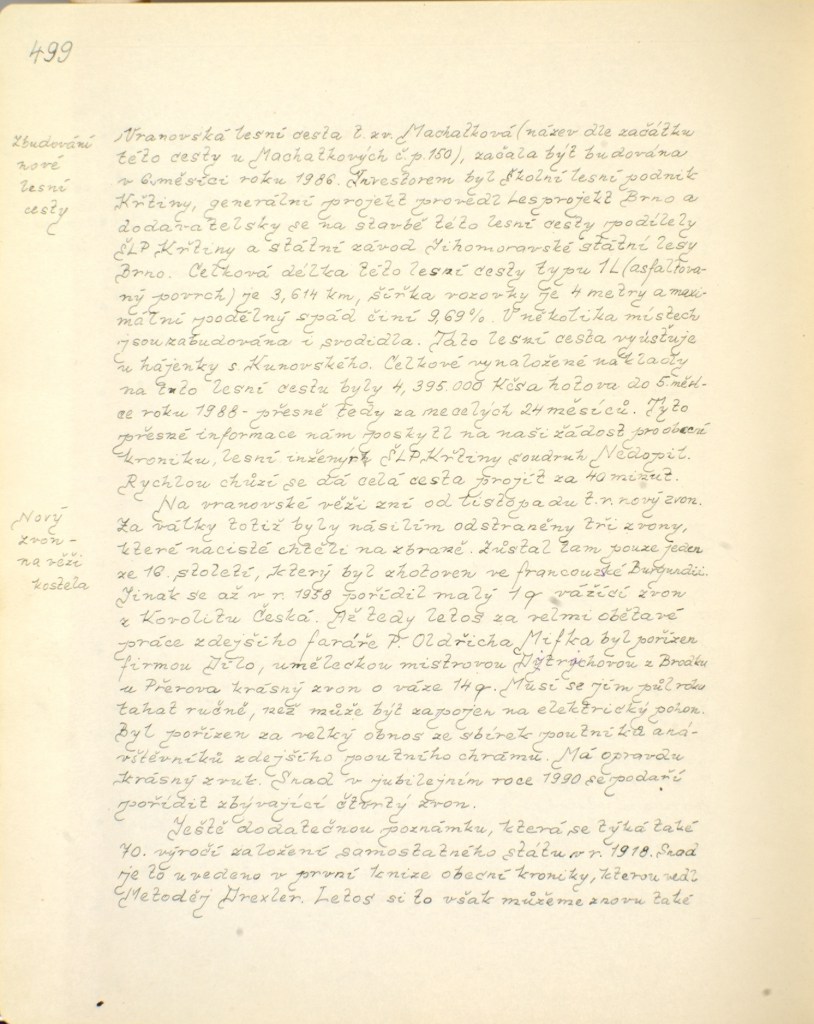 499
Zbudování
nové
lesní
cesty
Vranovská lesní cesta t. zv. Machatková (název dle začátku
této cesty u Machatkových č. p. 150), začala být budována
v 6. měsíci roku 1986. Investorem byl Školní lesní podnik
Křtiny, generální projekt provedl Lesprojekt Brno a
dodavatelsky se na stavbě této lesní cesty podílely
ŠLP Křtiny a státní závod Jihomoravské státní lesy
Brno. Celková délka této lesní cesty typu 1L (asfaltova-
ný povrch) je 3,614 km, šířka vozovky je 4 metry a maxi-
mální podélný spád činí 9,69%. V několika místech
jsou zabudována i svodidla. Tato lesní cesta vyúsťuje
u hájenky s. Kunovského. Celkové vynaložené náklady
na tuto lesní cestu byly 4,395.000 Kčs a hotova do 5. měsí-
ce roku 1988 - přesně tedy za necelých 24 měsíců. Tyto
přesné informace nám poskytl na naši žádost pro obecní
kroniku, lesní inženýr ŠLP Křtiny soudruh Nedopil.
Rychlou chůzí se dá celá cesta projít za 40 minut.
Nový
zvon -
na věži
kostela
Na vranovské věži zní od listopadu t. r. nový zvon.
Za války totiž byly násilím odstraněny tři zvony,
které nacisté chtěli na zbraně. Zůstal tam pouze jeden
ze 16. století, který byl zhotoven ve francouzské Burgundii.
Jinak se až v r. 1958 pořídil malý 1 q vážící zvon
z Korolitu Česká. Až tedy letos za velmi obětavé
práce zdejšího faráře P. Oldřicha Mifka byl pořízen
firmou Dílo, uměleckou mistrovou Dytrychovou z Brodku
u Přerova krásný zvon o váze 14 q. Musí se jím půl roku
tahat ručně, než může být zapojen na elektrický pohon.
Byl pořízen za velký obnos ze sbírek poutníků a ná-
vštěvníků zdejšího poutního chrámu. Má opravdu
krásný zvuk. Snad v jubilejním roce 1990 se podaří
pořídit zbývající čtvrtý zvon.
Ještě dodatečnou poznámku, která se týká také
70. výročí založení samostatného státu v r. 1918. Snad
je to uvedeno v první knize obecní kroniky, kterou vedl
Metoděj Drexler. Letos si to však můžeme znovu také